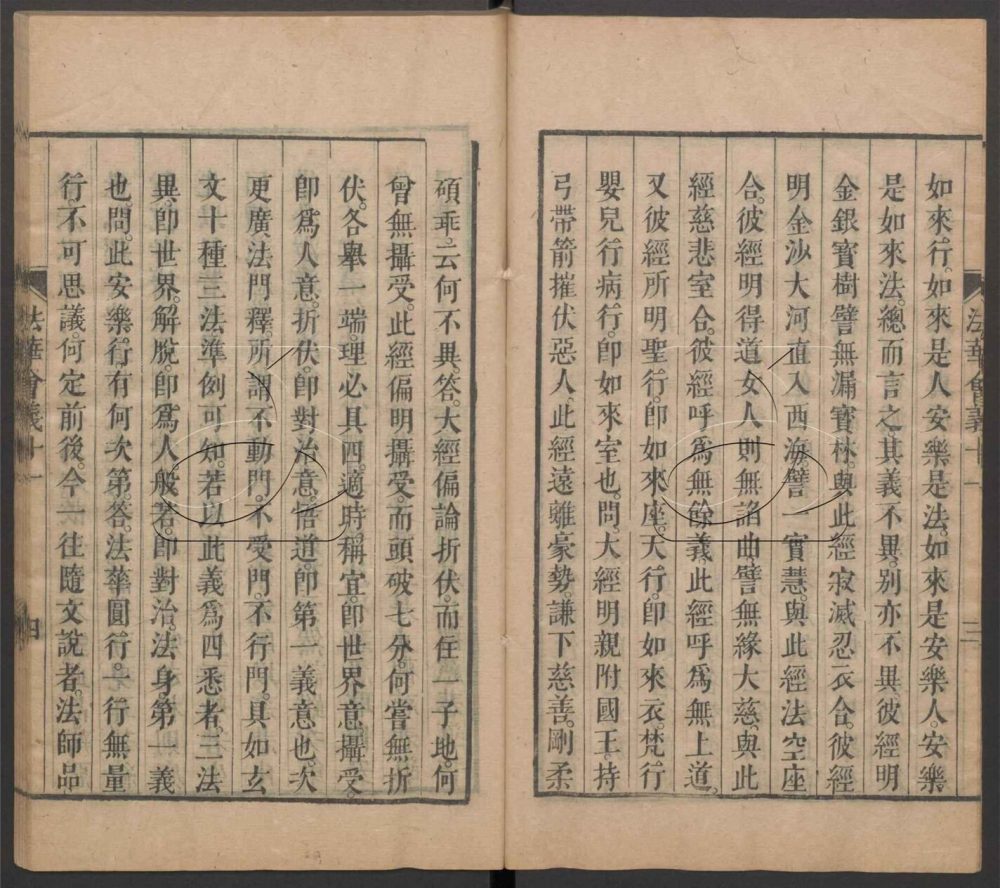 如來行。如來是人安樂是法。如來是安樂人。安樂
是如來法。總而言之。其義不異。別亦不異。彼經明
金銀寶樹譬無漏寶林。與此經寂滅忍衣合。彼經
明金沙大河直入西海。譬一實慧。與此經法空座
合。彼經明得道女人則無諂曲。譬無緣大慈。與此
經慈悲室合。彼經呼爲無餘義。此經呼爲無上道。
又彼經所明聖行。卽如來座。天行。卽如來衣。梵行
嬰兒行病行。卽如來室也。問。大經明親附國王。持
弓帶箭摧伏惡人。此經遠離豪勢。謙下慈善。剛柔
法華會義十一
三
碩乖。云何不異。答。大經偏論折伏。而住一子地。何
曾無攝受。此經偏明攝受。而頭破七分。何嘗無折
伏。各舉一端。理必具四。適時稱宜。卽世界意。攝受。
卽爲人意。折伏。卽對治意。悟道。卽第一義意也。次
更廣法門釋。所謂不動門。不受門。不行門。具如玄
文十種三法準例可知。若以此義爲四悉者。三法
異。卽世界。解脫。卽爲人般若。卽對治。法身。第一義
也。問。此安樂行。有何次第。答。法華圓行。一行無量
行。不可思議。何定前後。今一往隨文說者。法師品
法華會義十一
四